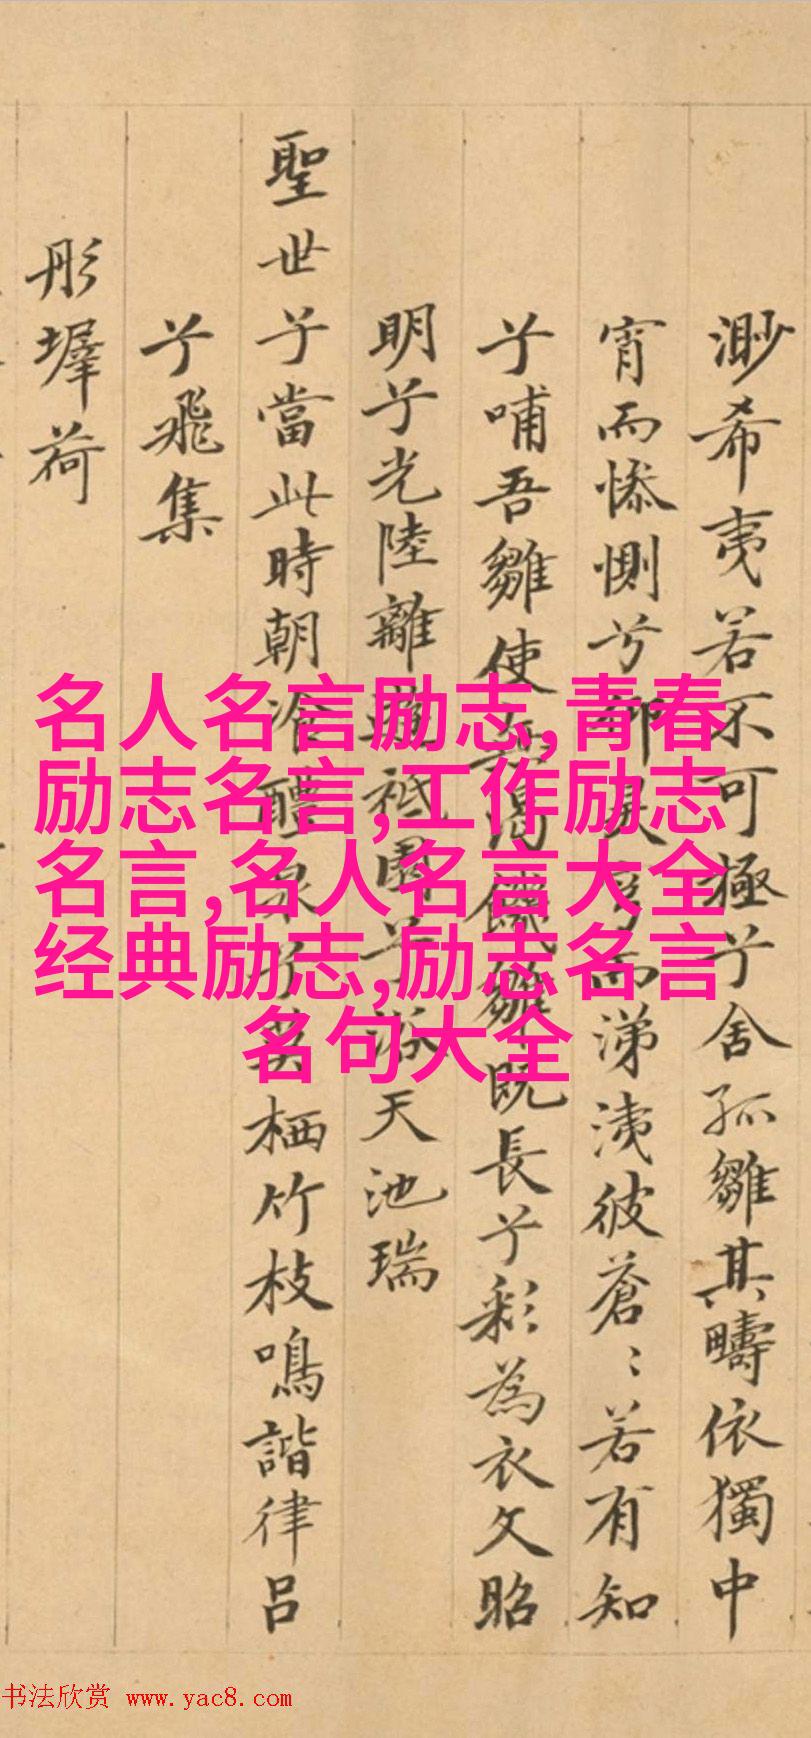 渺希夷若不可極兮舍孤雛其疇依獨中
宵而慘惻兮仰昊穹而涕洟彼蒼〻若有知
兮哺吾雛使無渴饑雛既長兮彩為衣文昭
明兮光陸離遊祗園兮浴天池瑞
聖世兮當此時朝飡醴泉兮莫栖竹枝鳴諧律呂
兮飛集
彤墀荷
名人名言励志,青春
励志名言,工作励志
名言,名人名言大全
经典励志,励志名言
名句大全
书法欣赏 www.yac8.com